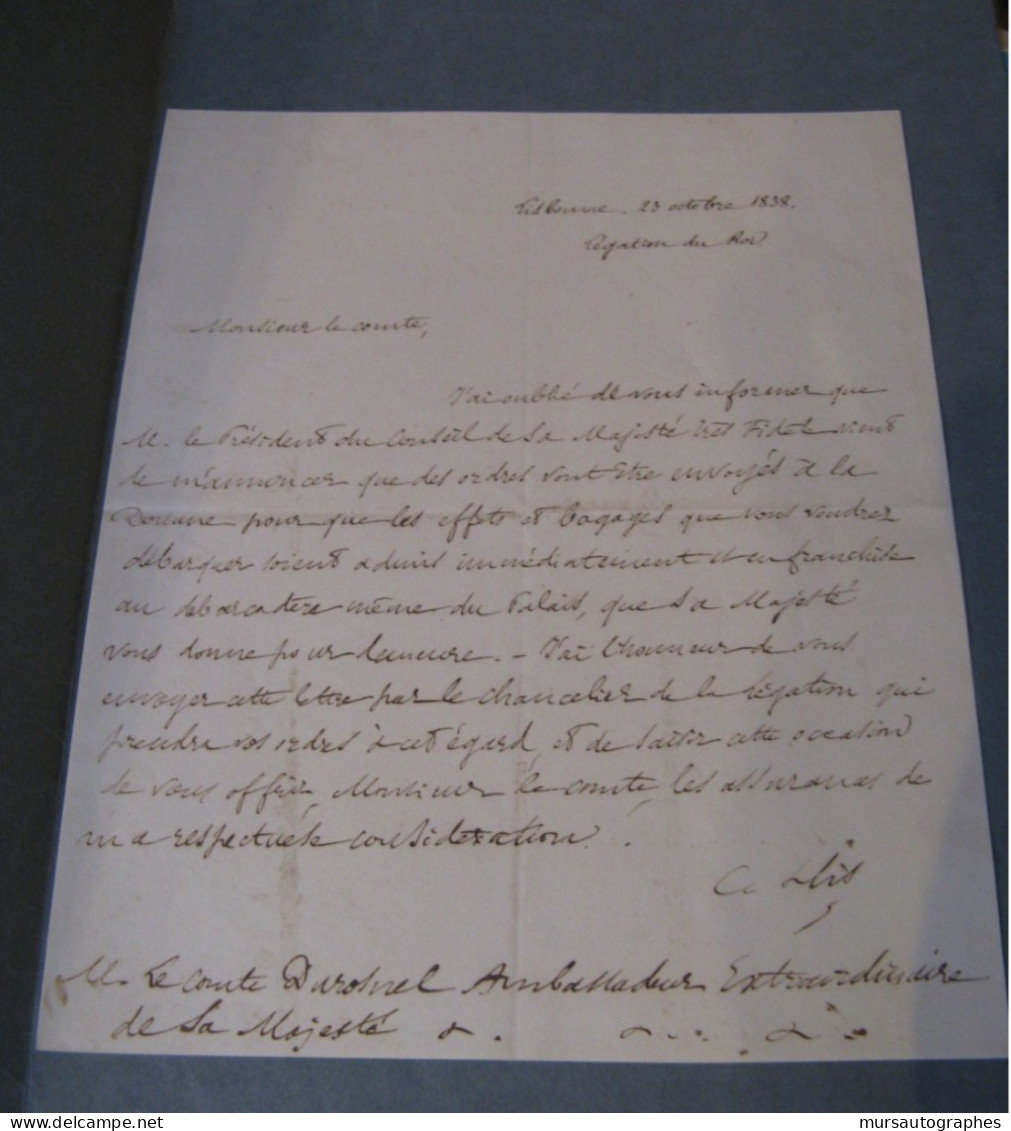 Lisbonne. 23 octobre 1838.
Légation du Roi
Monsieur le comte,
J'ai oublié de vous informer que
M. le Président du Conseil de Sa Majesté très Fidele vient
de m'annoncer que des ordres vont être envoyés à la
Douane pour que les effets et bagages que vous voudrez
débarquer soient admis immédiatement et en franchise
au débarcadère même du Palais, que Sa Majesté
vous donne pour demeure. – J'ai l'honneur de vous
envoyer cette lettre par le chancelier de la Légation qui
prendra vos ordres à cet égard, et de saisir cette occasion
de vous offrir, Monsieur le comte, les assurances de
ma respectueuse considération.
M. Le comte Durosnel Ambassadeur Extraordinaire
de Sa Majesté
delcampe.net
mursautographes